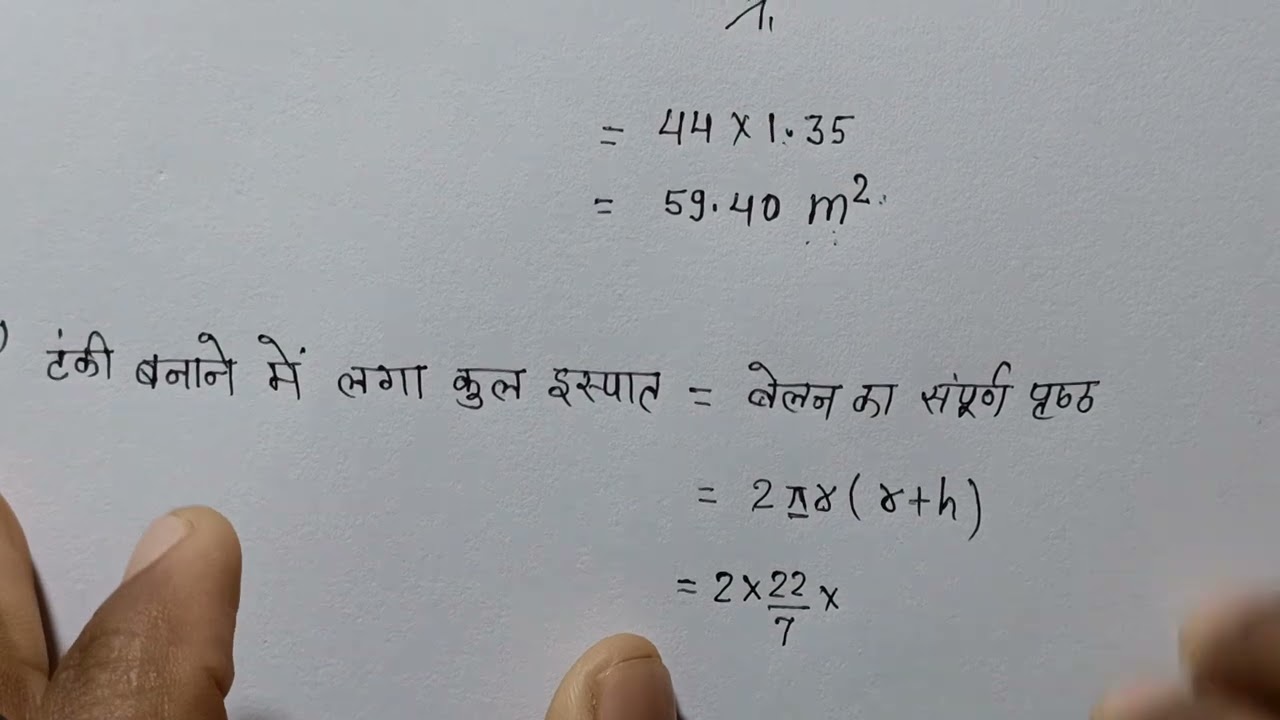 = 44 × 1.35
= 59.40 m²
) टंकी बनाने में लगा कुल इस्पात = बेलन का संपूर्ण पृष्ठ
= 2πr(r+h)
= 2 × 22/7 ×